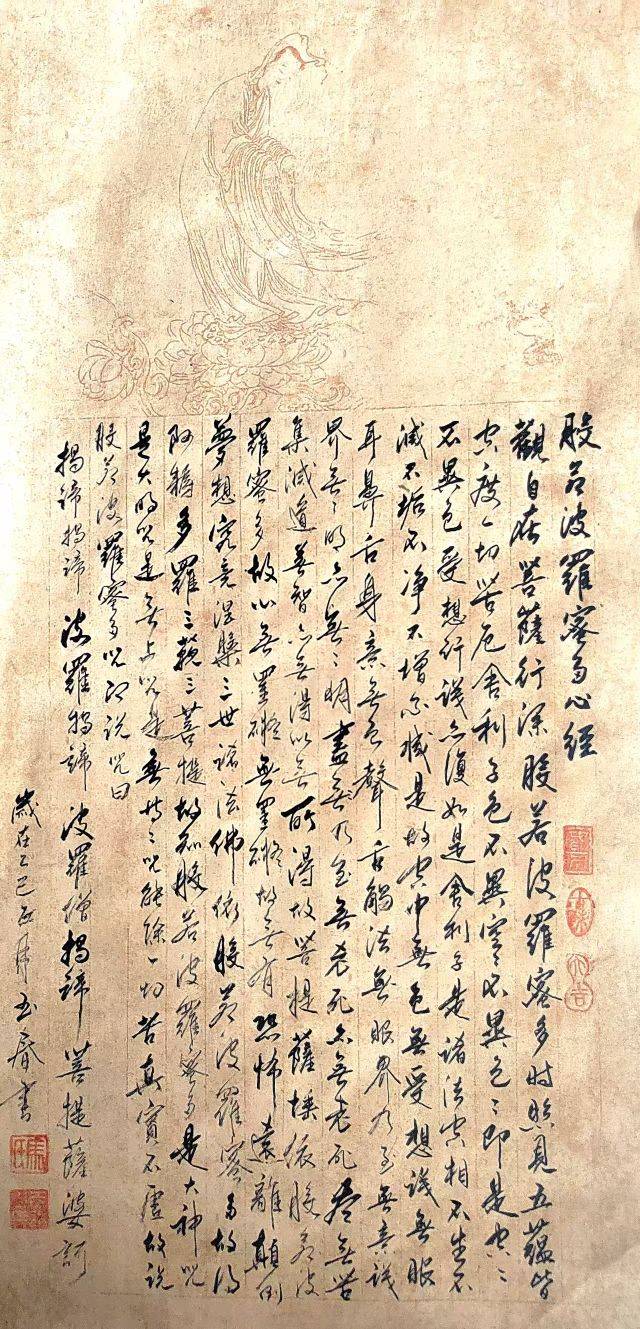 般若波羅蜜多心經
觀自在菩薩行深般若波羅蜜多時照見五蘊皆
空度一切苦厄舍利子色不異空〻不異色〻即是空〻
不異色受想行識亦復如是舍利子是諸法空相不生不
滅不垢不净不增不減是故空中無色無受想識無眼
耳鼻舌身意無色聲舌觸法無眼界乃至無意識
界無〻明亦無〻明盡無乃至無老死亦無老死盡無苦
集滅道無智亦無得以無所得故菩提薩埵依般若波
羅蜜多故心無罣礙無罣礙故無有恐怖遠離顛倒
夢想究竟涅槃三世諸法佛依般若波羅蜜多故得
阿耨多羅三藐三菩提故知般若波羅蜜多是大神咒
是大明咒是無上咒是無等〻咒能除一切苦真實不虛故說
般若波羅蜜多咒即說咒曰
揭諦揭諦 波羅揭諦 波羅僧揭諦 菩提薩婆訶
歲在乙巳 玉春書